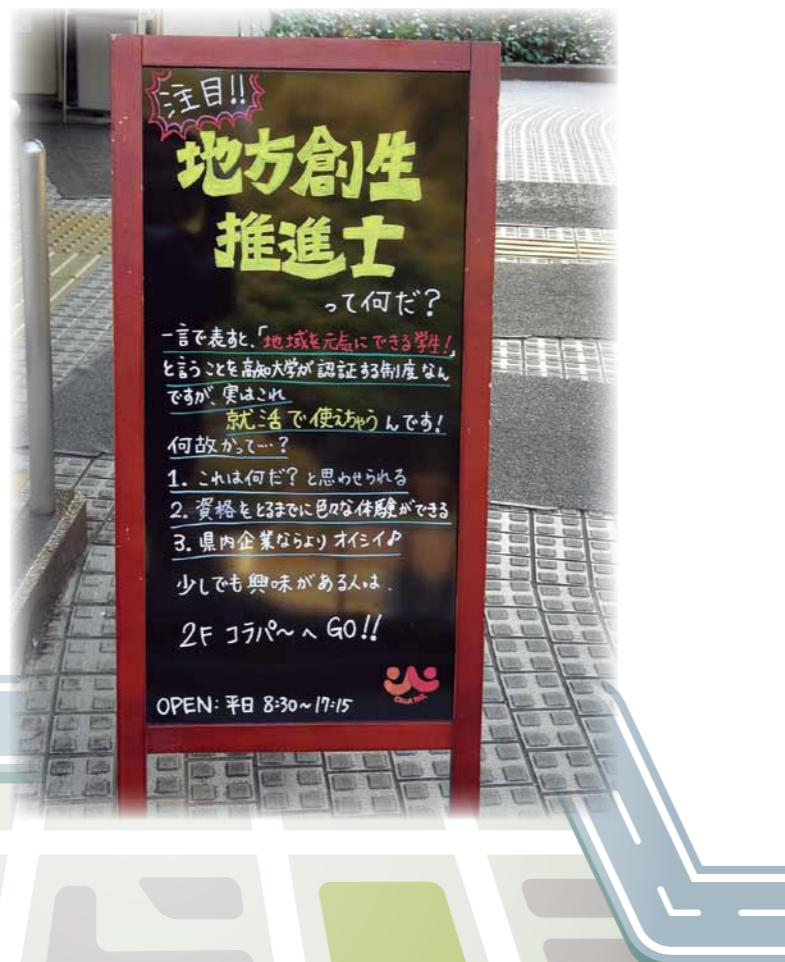 注目!!
地方創生
推進士
って何だ？
一言で表すと、「地域を元気にできる学生！」
と言うことを高知大学が認証する制度なん
ですが、実はこれ
就活で使えちゃうんです！
何故かって…？
1. これは何だ？と思わせられる
2. 資格をとるまでに色々な体験ができる
3. 県内企業ならよりオイシイ♪
少しでも興味がある人は.
2F コラパ〜へ GO!!
OPEN: 平日 8:30~17:15